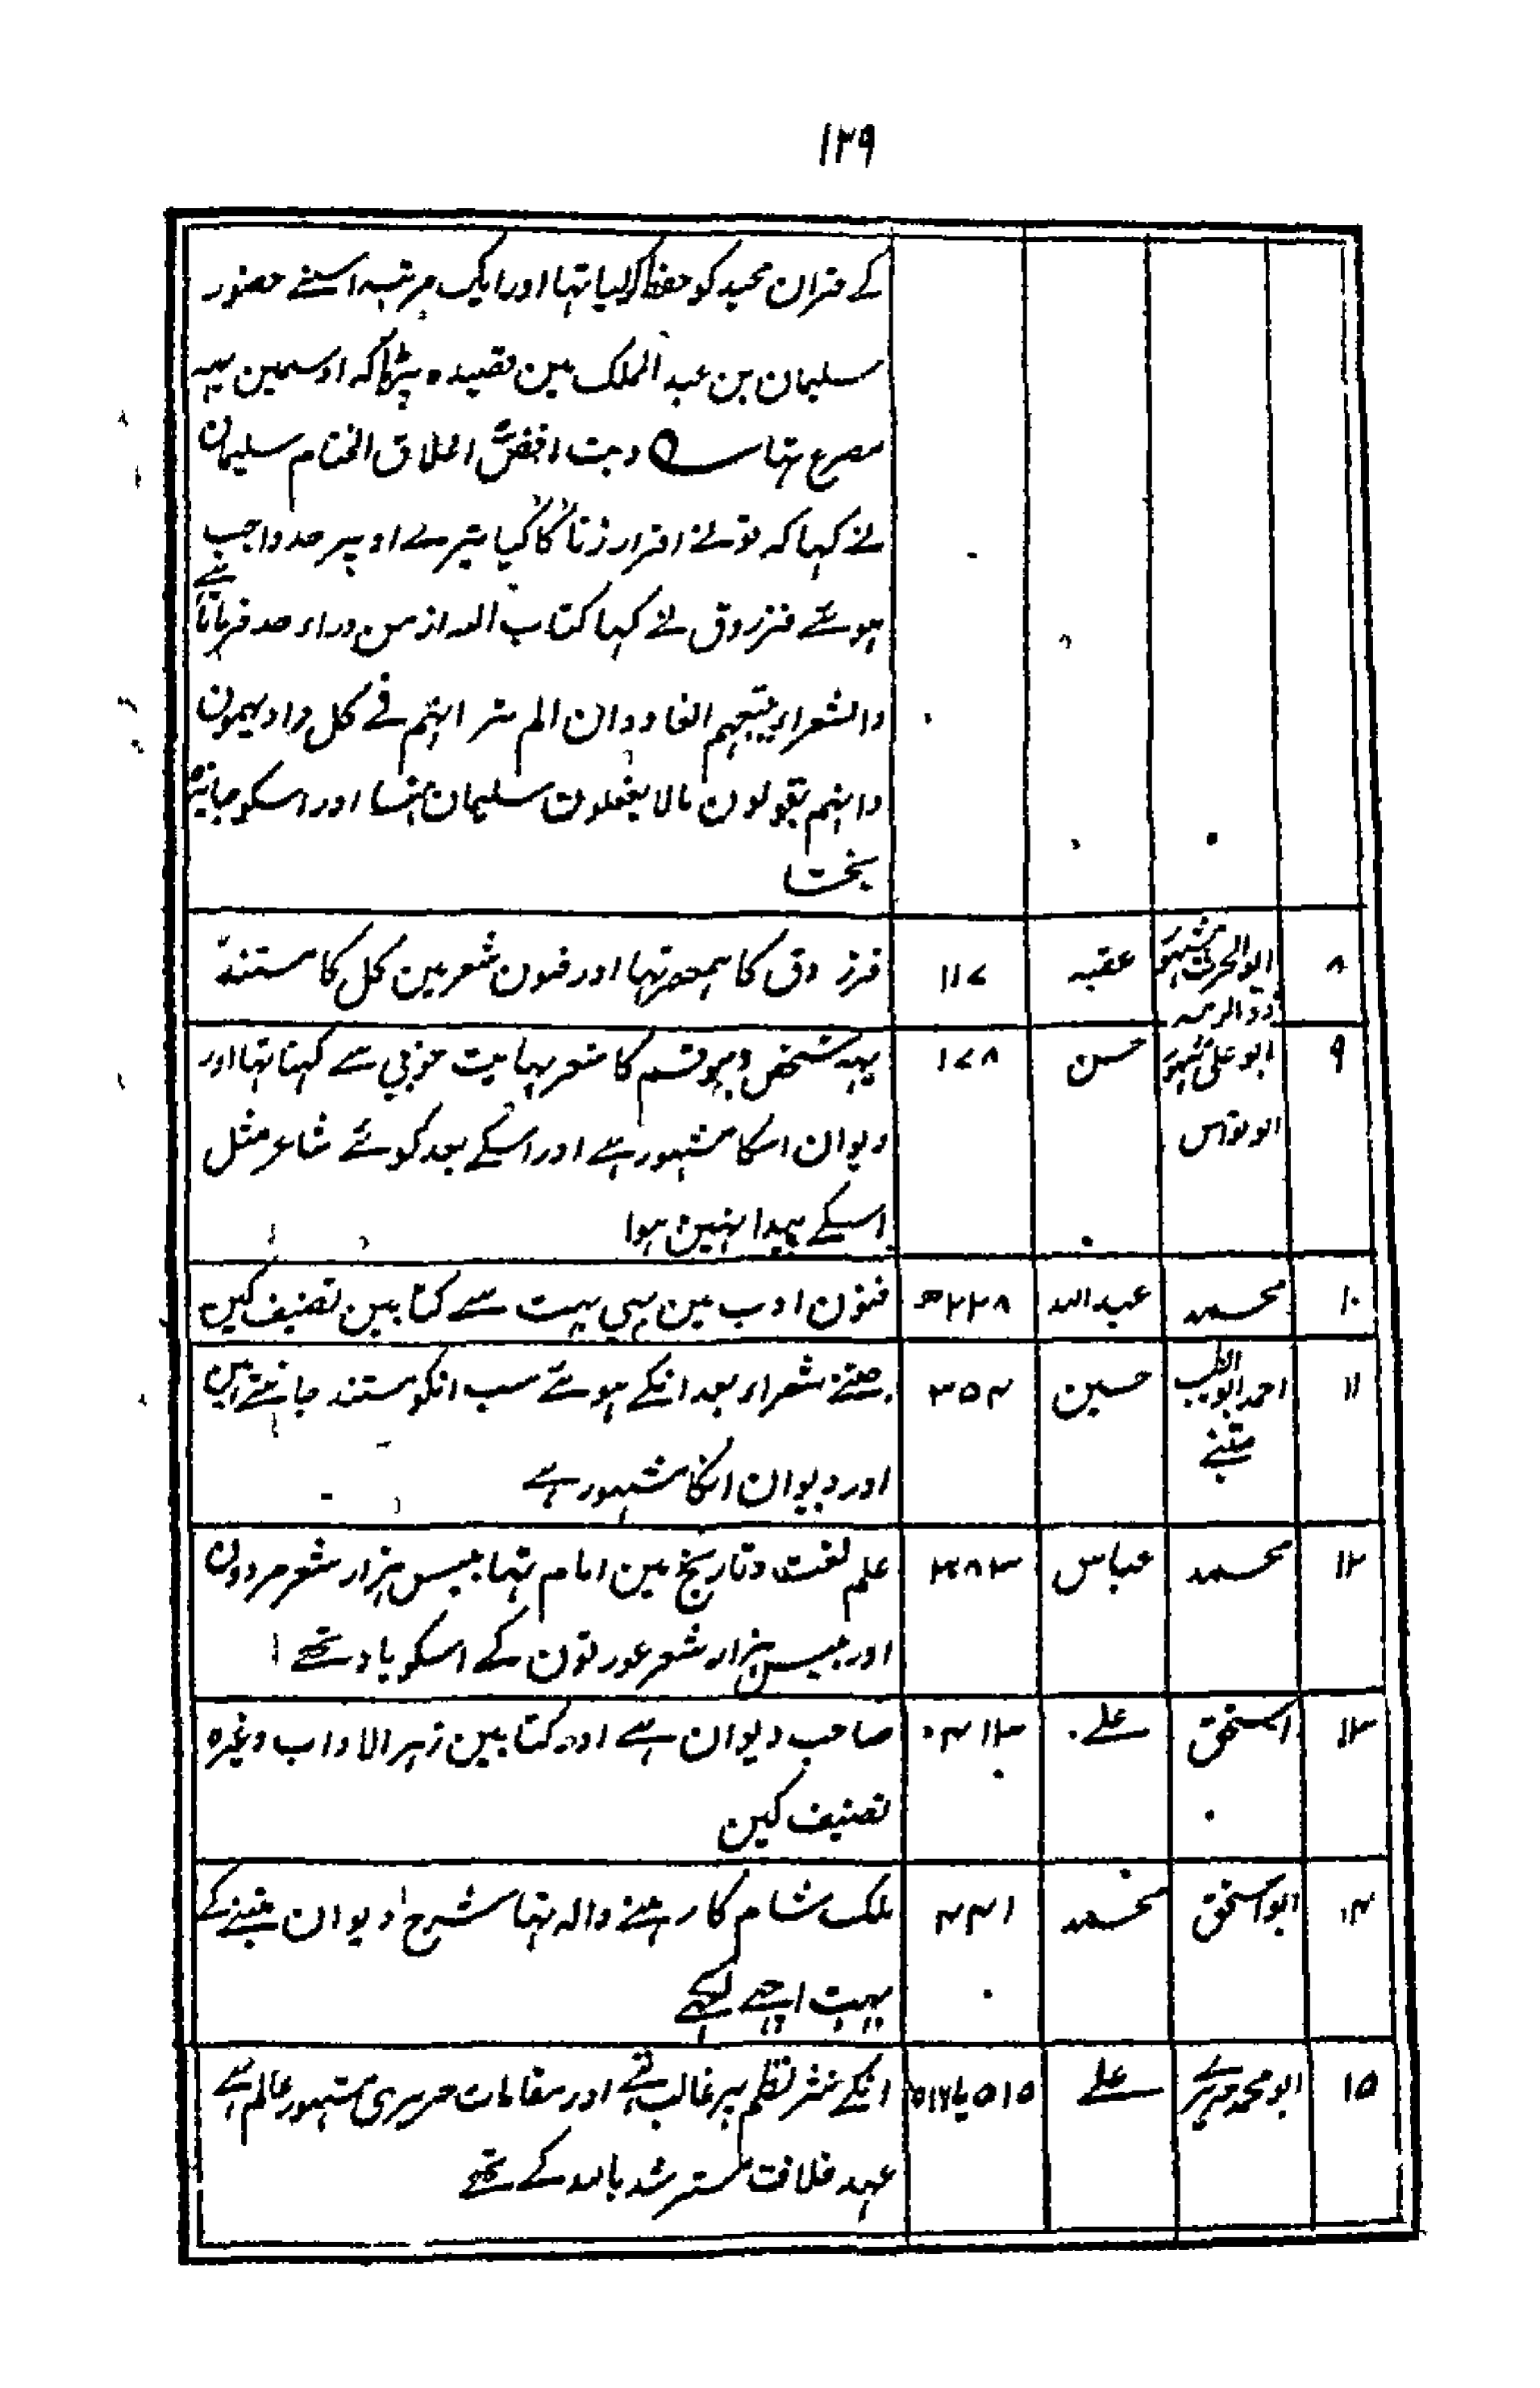 ۱۲۹
کے قران مجید کو حفظ کر لیا تہا اور ایک مرتبہ اسنے حضور
سلیمان بن عبد الملک مین قصیدہ پڑھا کہ اوسمین یہہ
مصرع تہا وبت افض اغلاق الختام سلیمان
نے کہا کہ تونے اقرار زنا کا کیا تیرے اوپر حد واجب
ہوئے فرزدق نے کہا کتاب اللہ از من وراء حد فرماتا ہے
والشعراء یتبعہم الغاوون الم تر انہم فے کل واد یہیمون
وانہم یقولون مالا یفعلون سلیمان ہنسا اور اسکو جائزہ
بخشا
۸ ابو الحرث مشہور ذو الرمہ عقبہ ۱۱۷ فرزدق کا ہمعصر تہا اور فنون شعر مین کل کا مستند
۹ ابو علی مشہور حسن ۱۷۸ یہہ شخص دہو قسم کا شعر نہایت خوبی سے کہتا تہا اور
ابو نواس دیوان اسکا مشہور ہے اور اسکے بعد کوئے شاعر مثل
اسکے پیدا نہین ہوا
۱۰ محمد عبد اللہ ۲۲۸ھ فنون ادب مین بہی بہت سے کتابین تصنیف کین
۱۱ احمد ابو الطیب حسین ۳۵۴ جتنے شعراء بعد انکے ہوئے سب انکو مستند جانتے ہین
متنبے اور دیوان انکا مشہور ہے
۱۲ محمد عباس ۳۸۳ علم لغت و تاریخ مین امام تہا بیس ہزار شعر مردون
اور بیس ہزار شعر عورتون کے اسکو یاد تھے
۱۳ اسحٰق علے ۴۱۳ صاحب دیوان ہے اور کتابین زہر الاداب وغیرہ
تصنیف کین
۱۴ ابو اسحٰق محمد ۴۴۱ ملک شام کا رہنے والہ تہا شرح دیوان متنبے کے
بہت اچھے لکھے
۱۵ ابو محمد حریرے علے ۵۱۵ یا ۵۱۶ انکے نثر نظم پر غالب تھے اور مقامات حریری مشہور عالم ہے
عہد خلافت مسترشد باللہ کے تھے